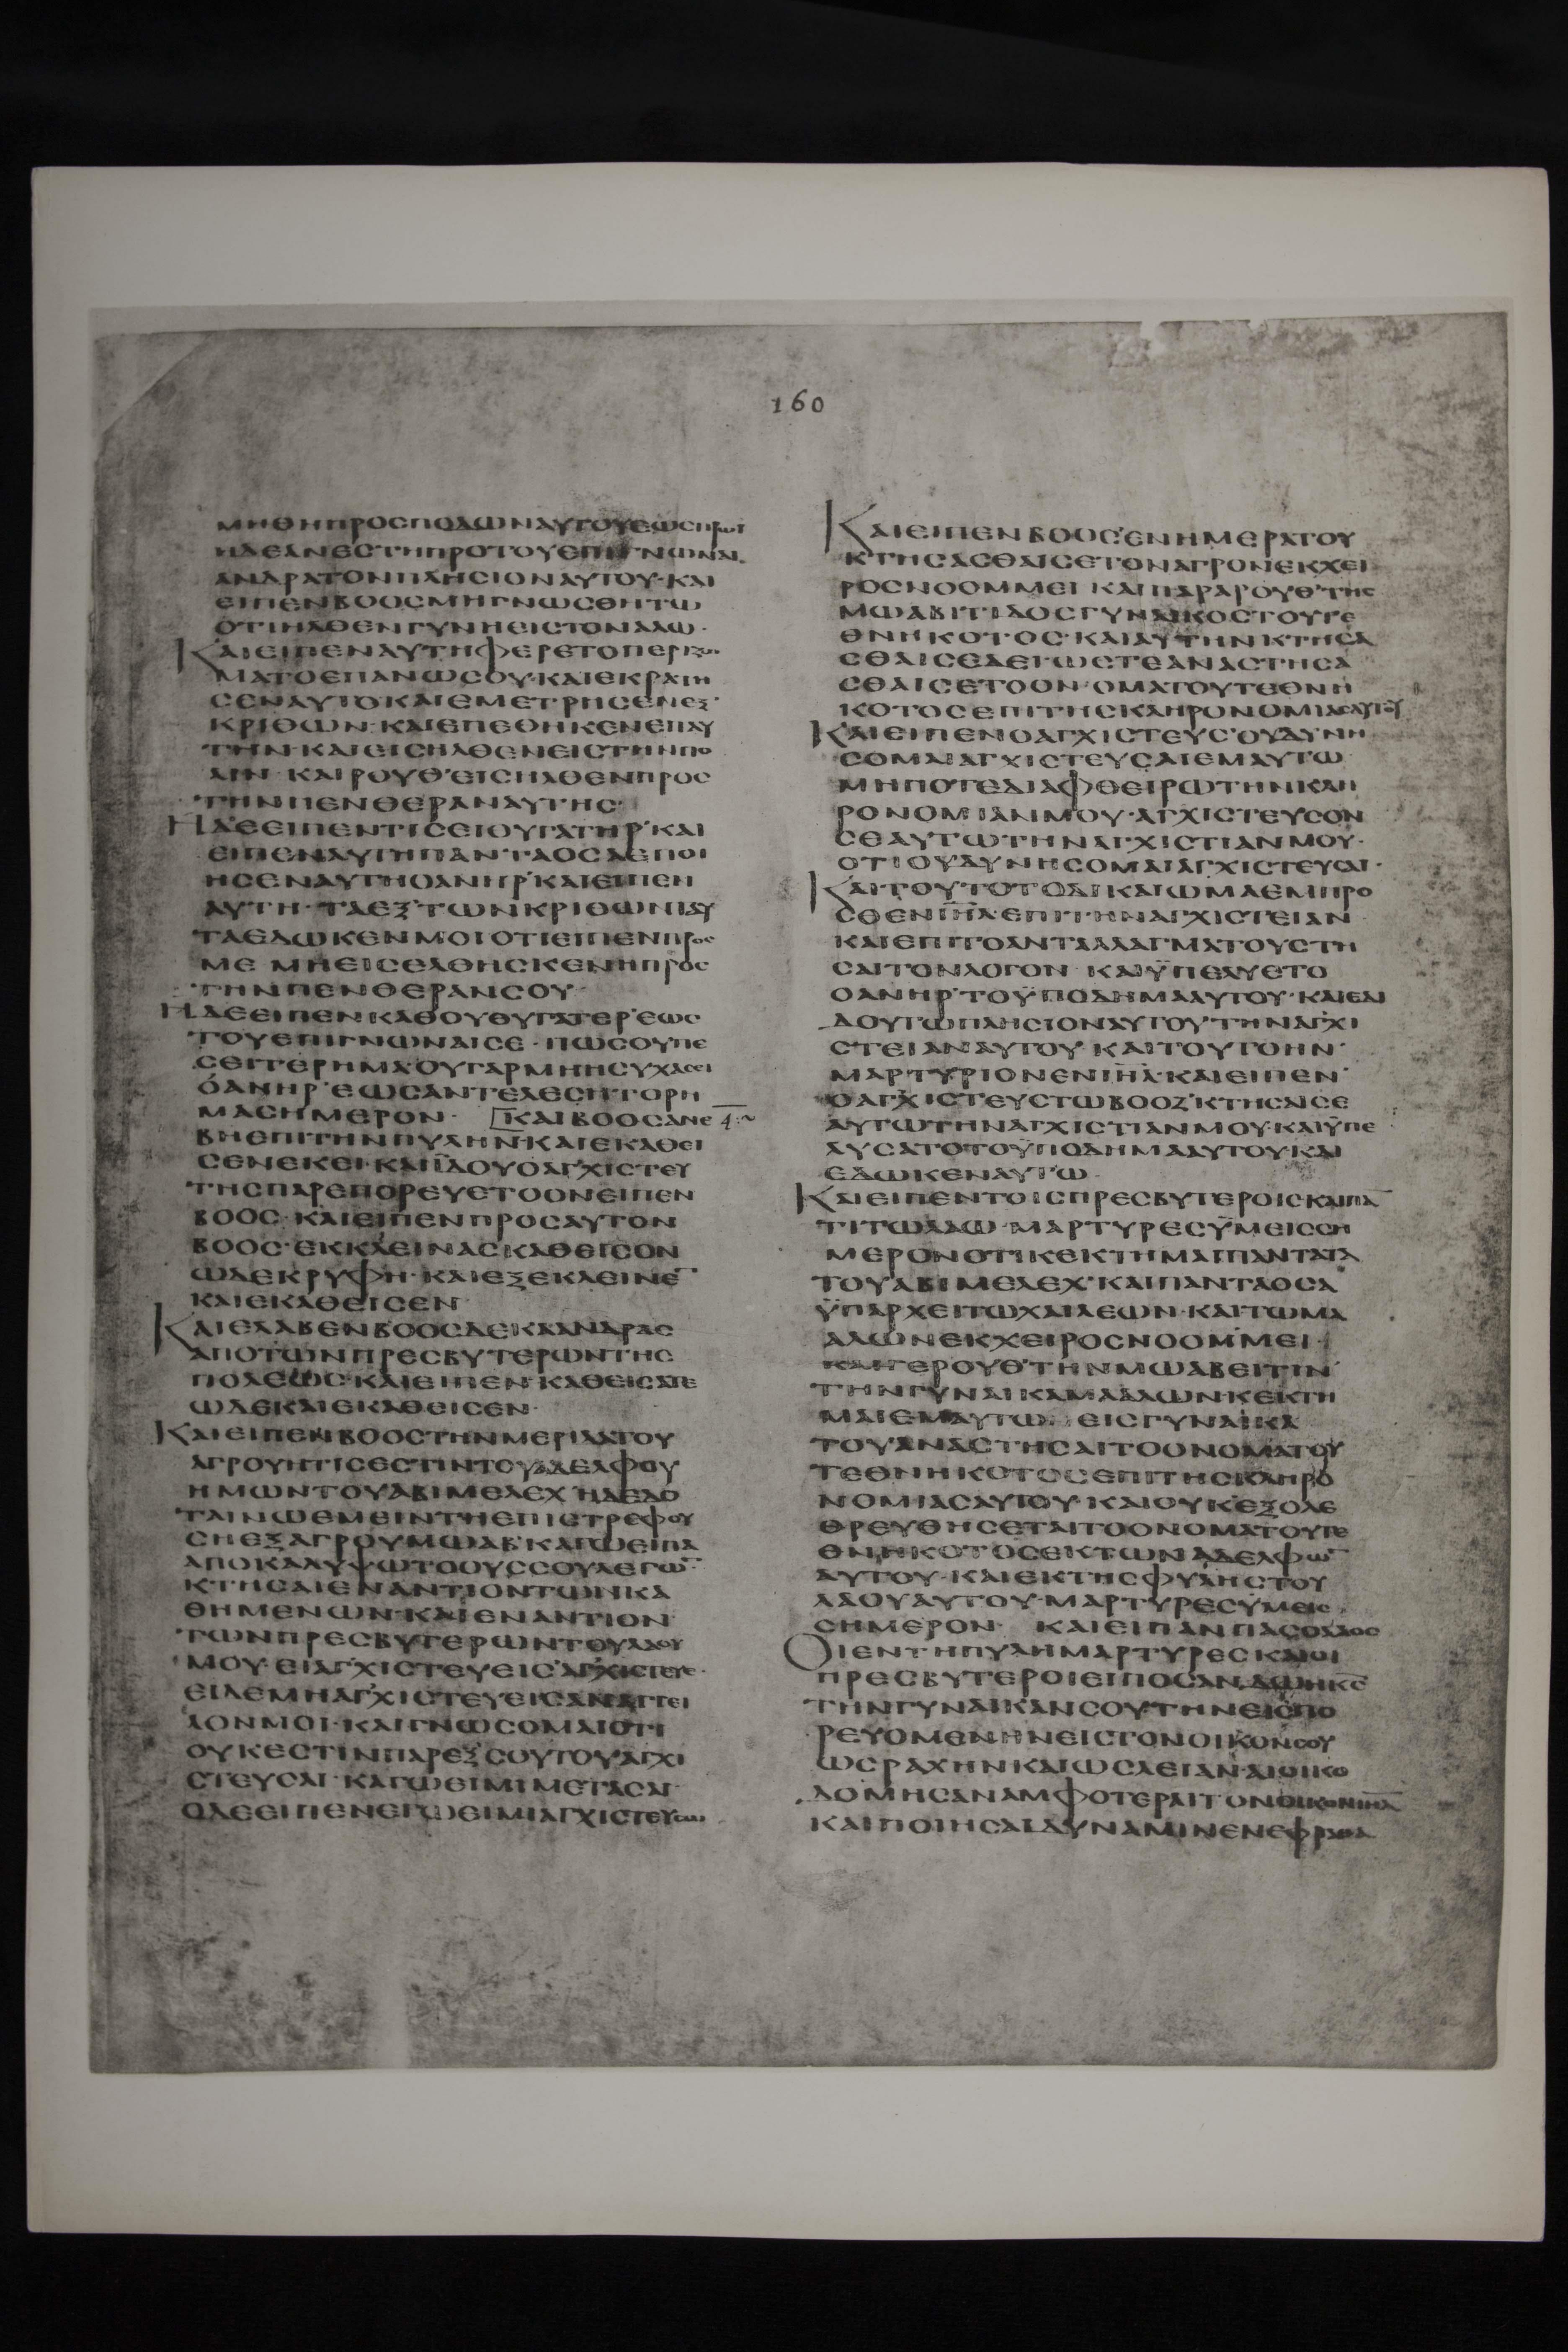 160
ΜΗΘΗΠΡΟСΠΟΔΩΝΑΥΤΟΥΕΩСΠΡΩΙ
ΗΔΕΑΝΕСΤΗΠΡΟΤΟΥΕΠΙΓΝΩΝΑΙ
ΑΝΔΡΑΤΟΝΠΛΗСΙΟΝΑΥΤΟΥ·ΚΑΙ
ΕΙΠΕΝΒΟΟСΜΗΓΝΩСΘΗΤΩ
ΟΤΙΗΛΘΕΝΓΥΝΗΕΙСΤΟΝΑΛΩ·
ΚΑΙΕΙΠΕΝΑΥΤΗΦΕΡΕΤΟΠΕΡΙΖΩ
ΜΑΤΟΕΠΑΝΩСΟΥ·ΚΑΙΕΚΡΑΤΗ
СΕΝΑΥΤΟΚΑΙΕΜΕΤΡΗСΕΝΕΞ
ΚΡΙΘΩΝ·ΚΑΙΕΠΕΘΗΚΕΝΕΠΑΥ
ΤΗΝ·ΚΑΙΕΙСΗΛΘΕΝΕΙСΤΗΝΠΟ
ΛΙΝ·ΚΑΙΡΟΥΘ᾽ΕΙСΗΛΘΕΝΠΡΟС
ΤΗΝΠΕΝΘΕΡΑΝΑΥΤΗС
ΗΔΕΕΙΠΕΝΤΙСΕΙΟΥΓΑΤΗΡ᾽ΚΑΙ
ΕΙΠΕΝΑΥΤΗΠΑΝΤΑΟСΑΕΠΟΙ
ΗСΕΝΑΥΤΗΟΑΝΗΡ᾽ΚΑΙΕΙΠΕΝ
ΑΥΤΗ·ΤΑΕΞ᾽ΤΩΝΚΡΙΘΩΝΤΑΥ
ΤΑΕΔΩΚΕΝΜΟΙΟΤΙΕΙΠΕΝΠΡΟС
ΜΕ ΜΗΕΙСΕΛΘΗСΚΕΝΗΠΡΟС
ΤΗΝΠΕΝΘΕΡΑΝСΟΥ·
ΗΔΕΕΙΠΕΝΚΑΘΟΥΘΥΓΑΤΕΡ᾽ΕΩС
ΤΟΥΕΠΙΓΝΩΝΑΙСΕ·ΠΩСΟΥΠΕ
СΕΙΤΕΡΗΜΑ·ΟΥΓΑΡΜΗΗСΥΧΑСΕΙ
ΟΑΝΗΡ᾽ΕΩСΑΝΤΕΛΕСΗΤΟΡΗ
ΜΑСΗΜΕΡΟΝ· ΚΑΙΒΟΟСΑΝΕ 4:~
ΒΗΕΠΙΤΗΝΠΥΛΗΝ·ΚΑΙΕΚΑΘΕΙ
СΕΝΕΚΕΙ·ΚΑΙΪΔΟΥΟΑΓΧΙСΤΕΥ
ΤΗСΠΑΡΕΠΟΡΕΥΕΤΟΟΝΕΙΠΕΝ
ΒΟΟС·ΚΑΙΕΙΠΕΝΠΡΟСΑΥΤΟΝ
ΒΟΟС·ΕΚΚΛΕΙΝΑСΚΑΘΕΙСΟΝ
ΩΔΕΚΡΥΦΗ·ΚΑΙΕΞΕΚΛΕΙΝΕ̅
ΚΑΙΕΚΑΘΕΙСΕΝ
ΚΑΙΕΛΑΒΕΝΒΟΟСΔΕΚΑΑΝΔΡΑС
ΑΠΟΤΩΝΠΡΕСΒΥΤΕΡΩΝΤΗС
ΠΟΛΕΩС·ΚΑΙΕΙΠΕΝ·ΚΑΘΕΙСΑΤΕ
ΩΔΕΚΑΙΕΚΑΘΕΙСΕΝ·
ΚΑΙΕΙΠΕΝΒΟΟСΤΗΝΜΕΡΙΔΑΤΟΥ
ΑΓΡΟΥΗΤΙСΕСΤΙΝΤΟΥΑΔΕΛΦΟΥ
ΗΜΩΝΤΟΥΑΒΙΜΕΛΕΧ᾽ΗΔΕΔΟ
ΤΑΙΝΩΕΜΕΙΝΤΗΕΠΙСΤΡΕΦΟΥ
СΗΕΞΑΓΡΟΥΜΩΑΒ᾽ΚΑΓΩΕΙΠΑ
ΑΠΟΚΑΛΥΨΩΤΟΟΥССΟΥΛΕΓΩ̅
ΚΤΗСΑΙΕΝΑΝΤΙΟΝΤΩΝΚΑ
ΘΗΜΕΝΩΝ·ΚΑΙΕΝΑΝΤΙΟΝ
ΤΩΝΠΡΕСΒΥΤΕΡΩΝΤΟΥΛΑΟΥ
ΜΟΥ·ΕΙΑΓΧΙСΤΕΥΕΙСΑΓΧΙСΤΕΥΕ·
ΕΙΔΕΜΗΑΓΧΙСΤΕΥΕΙСΑΝΑΓΓΕΙ
ΛΟΝΜΟΙ·ΚΑΙΓΝΩСΟΜΑΙΟΤΙ
ΟΥΚΕСΤΙΝΠΑΡΕΞСΟΥΤΟΥΑΓΧΙ
СΤΕΥСΑΙ·ΚΑΓΩΕΙΜΙΜΕΤΑСΑΙ·
ΟΔΕΕΙΠΕΝΕΓΩΕΙΜΙΑΓΧΙСΤΕΥСΩ
ΚΑΙΕΙΠΕΝΒΟΟС᾽ΕΝΗΜΕΡΑΤΟΥ
ΚΤΗСΑСΘΑΙСΕΤΟΝΑΓΡΟΝΕΚΧΕΙ
ΡΟСΝΟΟΜΜΕΙ ΚΑΙΠΑΡΑΡΟΥΘ᾽ΤΗС
ΜΩΑΒΙΤΙΔΟСΓΥΝΑΙΚΟСΤΟΥΤΕ
ΘΝΗΚΟΤΟС·ΚΑΙΑΥΤΗΝΚΤΗСΑ
СΘΑΙСΕΔΕΙΩСΤΕΑΝΑСΤΗСΑ
СΘΑΙСΕΤΟΟΝΟΜΑΤΟΥΤΕΘΝΗ
ΚΟΤΟСΕΠΙΤΗСΚΛΗΡΟΝΟΜΙΑСΑΥΤΟΥ
ΚΑΙΕΙΠΕΝΟΑΓΧΙСΤΕΥС᾽ΟΥΔΥΝΗ
СΟΜΑΙΑΓΧΙСΤΕΥСΑΙΕΜΑΥΤΩ
ΜΗΠΟΤΕΔΙΑΦΘΕΙΡΩΤΗΝΚΛΗ
ΡΟΝΟΜΙΑΝΜΟΥ·ΑΓΧΙСΤΕΥСΟΝ
СΕΑΥΤΩΤΗΝΑΓΧΙСΤΙΑΝΜΟΥ·
ΟΤΙΟΥΔΥΝΗСΟΜΑΙΑΓΧΙСΤΕΥСΑΙ·
ΚΑΙΤΟΥΤΟΤΟΔΙΚΑΙΩΜΑΕΜΠΡΟ
СΘΕΝΙ̅Η̅Λ̅·ΕΠΙΤΗΝΑΓΧΙСΤΕΙΑΝ
ΚΑΙΕΠΙΤΟΑΝΤΑΛΛΑΓΜΑΤΟΥСΤΗ
СΑΙΤΟΝΛΟΓΟΝ ΚΑΙΫΠΕΛΥΕΤΟ
ΟΑΝΗΡ᾽ΤΟΫΠΟΔΗΜΑΑΥΤΟΥ·ΚΑΙΕΔΙ
ΔΟΥΤΩΠΛΗСΙΟΝΑΥΤΟΥΤΗΝΑΓΧΙ
СΤΕΙΑΝΑΥΤΟΥ·ΚΑΙΤΟΥΤΟΗΝ
ΜΑΡΤΥΡΙΟΝΕΝΙ̅Η̅Λ̅·ΚΑΙΕΙΠΕΝ
ΟΑΓΧΙСΤΕΥСΤΩΒΟΟΖ᾽ΚΤΗСΑΙСΕ
ΑΥΤΩΤΗΝΑΓΧΙСΤΙΑΝΜΟΥ·ΚΑΙΫΠΕ
ΛΥСΑΤΟΤΟΫΠΟΔΗΜΑΑΥΤΟΥΚΑΙ
ΕΔΩΚΕΝΑΥΤΩ·
ΚΑΙΕΙΠΕΝΤΟΙСΠΡΕСΒΥΤΕΡΟΙСΚΑΙΠΑ̅
ΤΙΤΩΛΑΩ·ΜΑΡΤΥΡΕСΫΜΕΙССΗ
ΜΕΡΟΝΟΤΙΚΕΚΤΗΜΑΙΠΑΝΤΑΤΑ
ΤΟΥΑΒΙΜΕΛΕΧ᾽ΚΑΙΠΑΝΤΑΟСΑ
ΫΠΑΡΧΕΙΤΩΧΑΙΛΕΩΝ·ΚΑΙΤΩΜΑ
ΑΛΩΝΕΚΧΕΙΡΟСΝΟΟΜΜΕΙ·
ΚΑΙΓΕΡΟΥΘ᾽ΤΗΝΜΩΑΒΕΙΤΙΝ
ΤΗΝΓΥΝΑΙΚΑΜΑΑΛΩΝΚΕΚΤΗ
ΜΑΙΕΜΑΥΤΩ ΕΙСΓΥΝΑΙΚΑ
ΤΟΥΑΝΑСΤΗСΑΙΤΟΟΝΟΜΑΤΟΥ
ΤΕΘΝΗΚΟΤΟСΕΠΙΤΗСΚΛΗΡΟ
ΝΟΜΙΑСΑΥΤΟΥ·ΚΑΙΟΥΚΕΞΟΛΕ
ΘΡΕΥΘΗСΕΤΑΙΤΟΟΝΟΜΑΤΟΥΤΕ
ΘΝΗΚΟΤΟСΕΚΤΩΝΑΔΕΛΦΩ̅
ΑΥΤΟΥ·ΚΑΙΕΚΤΗСΦΥΛΗСΤΟΥ
ΛΑΟΥΑΥΤΟΥ·ΜΑΡΤΥΡΕСΫΜΕΙС
СΗΜΕΡΟΝ· ΚΑΙΕΙΠΑΝΠΑСΟΛΑΟС
ΟΙΕΝΤΗΠΥΛΗΜΑΡΤΥΡΕСΚΑΙΟΙ
ΠΡΕСΒΥΤΕΡΟΙΕΙΠΟСΑΝ·ΔΩΗΚ̅С̅
ΤΗΝΓΥΝΑΙΚΑΝСΟΥΤΗΝΕΙСΠΟ
ΡΕΥΟΜΕΝΗΝΕΙСΤΟΝΟΙΚΟΝСΟΥ
ΩСΡΑΧΗΝΚΑΙΩСΛΕΙΑΝ·ΑΙΟΙΚΟ
ΔΟΜΗСΑΝΑΜΦΟΤΕΡΑΙΤΟΝΟΙΚΟΝΙ̅Η̅Λ̅
ΚΑΙΠΟΙΗСΑΙΔΥΝΑΜΙΝΕΝΕΦΡΑΘΑ